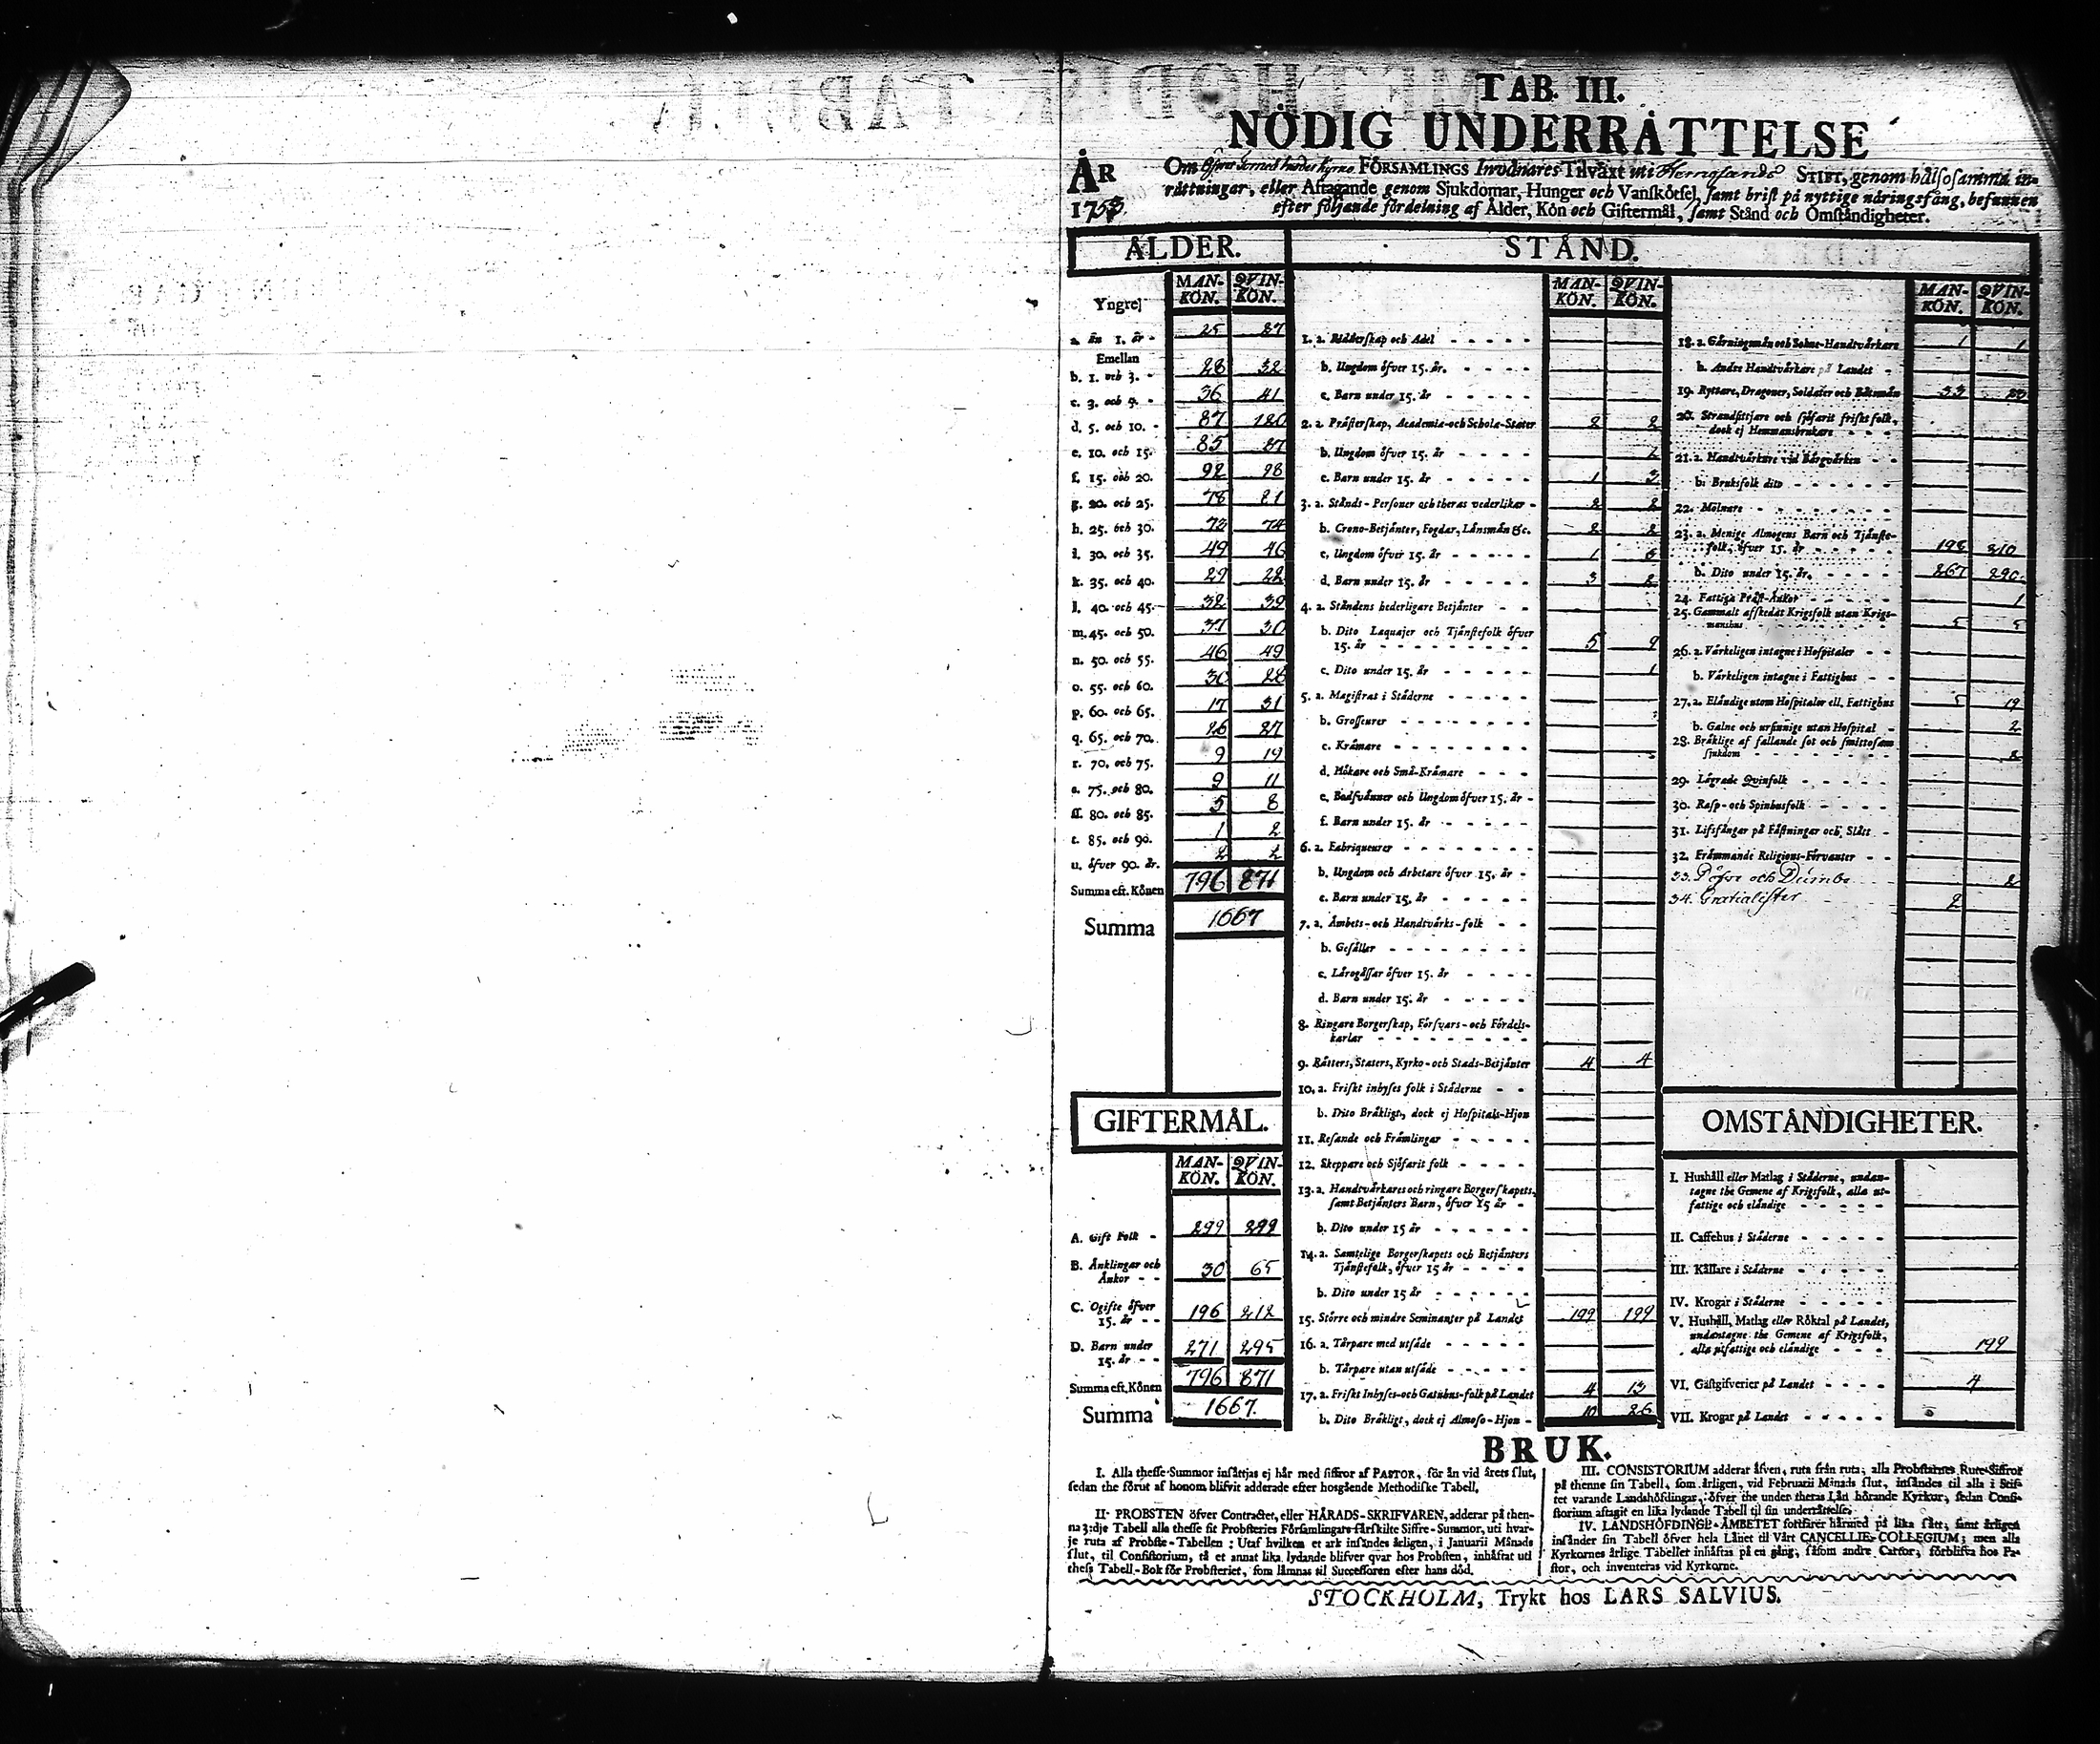 TAB. III.
NÖDIG UNDERRÅTTELSE
ÅR 1753.
Om FÖRSAMLINGS Invånares Tilväxt uti STIFT, genom hälsosamma in-
rättningar, eller Aftagande genom Sjukdomar, Hunger och Vanskötsel, samt brist på nyttige näringsfång, befunnen
efter följande fördelning af Ålder, Kön och Giftermål, samt Stånd och Omständigheter.
ÅLDER.
MAN-KÖN. QVIN-KÖN.
Yngre,
a. än 1. år - 25 27
Emellan
b. 1. och 3. - 28 32
c. 3. och 5. - 36 41
d. 5. och 10. - 87 120
e. 10. och 15. 85 87
f. 15. och 20. 92 98
g. 20. och 25. 78 81
h. 25. och 30. 73 74
i. 30. och 35. 49 46
k. 35. och 40. 29 22
l. 40. och 45. 32 39
m. 45. och 50. 37 30
n. 50. och 55. 46 49
o. 55. och 60. 30 28
p. 60. och 65. 17 31
q. 65. och 70. 26 27
r. 70. och 75. 9 19
s. 75. och 80. 9 11
ss. 80. och 85. 5 8
t. 85. och 90. 1 2
u. öfver 90. år. 2 2
Summa eft. Könen 796 871
Summa 1667
GIFTERMÅL.
MAN-KÖN. QVIN-KÖN.
A. Gift Folk - 299 299
B. Änklingar och Änkor - - 30 65
C. Ogifte öfver 15. år - - 196 212
D. Barn under 15. år - - 271 295
Summa eft. Könen 796 871
Summa 1667.
STÅND.
MAN-KÖN. QVIN-KÖN.
1. a. Ridderskap och Adel
b. Ungdom öfver 15. år.
c. Barn under 15. år
2. a. Prästerskap, Academiæ-och Scholæ-Stater 2 2
b. Ungdom öfver 15. år 2
c. Barn under 15. år 1 3
3. a. Stånds-Personer och theras vederlikar 2 2
b. Crono-Betjänter, Fogdar, Länsmän &c. 2 2
c. Ungdom öfver 15. år 1 6
d. Barn under 15. år 3 2
4. a. Ståndens hederligare Betjänter
b. Dito Laquajer och Tjänstefolk öfver
15. år 5 9
c. Dito under 15. år 1
5. a. Magistrat i Städerne
b. Grosseurer
c. Krämare
d. Hökare och Små-Krämare
e. Bodsvänner och Ungdom öfver 15. år
f. Barn under 15. år
6. a. Fabriqueurer
b. Ungdom och Arbetare öfver 15. år
c. Barn under 15. år
7. a. Ämbets-och Handtvärks-folk
b. Gesäller
c. Lärogåssar öfver 15. år
d. Barn under 15. år
8. Ringare Borgerskap, Försvars-och Fördels-
karlar
9. Rätters, Staters, Kyrko-och Stads-Betjänter 4 4
10. a. Friskt inhyses folk i Städerne
b. Dito Bräkligt, dock ej Hospitals-Hjon
11. Resande och Främlingar
12. Skeppare och Sjöfarit folk
13. a. Handtvärkares och ringare Borgerskapets,
samt Betjänters Barn, öfver 15 år
b. Dito under 15 år
14. a. Samtelige Borgerskapets och Betjänters
Tjänstefolk, öfver 15 år
b. Dito under 15 år
15. Större och mindre Hemmanter på Landet 199 199
16. a. Tårpare med utsäde
b. Tårpare utan utsäde
17. a. Friskt Inhyses-och Gatuhus-folk på Landet 4 13
b. Dito Bräkligt, dock ej Almoso-Hjon 10 26
MAN-KÖN. QVIN-KÖN.
18. a. Gärningsmän och Sokne-Handtvärkare 1 1
b. Andre Handtvärkare på Landet
19. Ryttare, Dragoner, Soldater och Båtsmän 33 23
20. Strandsittjare och sjöfarit friskt folk,
dock ej Hemmansbrukare
21. a. Handtvärkare vid Bärgvärken
b. Bruksfolk dito
22. Mölnare
23. a. Menige Almogens Barn och Tjänste-
folk, öfver 15. år 198 210
b. Dito under 15. år. 267 290.
24. Fattiga Präst-Änkor 1
25. Gammalt afskedat Krigsfolk utan Krigs-
manshus 5 5
26. a. Värkeligen intagne i Hospitaler
b. Värkeligen intagne i Fattighus
27. a. Eländige utom Hospitaler ell. Fattighus 5 19
b. Galne och ursinnige utan Hospital 2
28. Bräklige af fallande sot och smittosam
sjukdom 2
29. Lägrade Qvinfolk
30. Rasp-och Spinhusfolk
31. Lifsfångar på Fästningar och Slått
32. Främmande Religions-Förvanter
33. Döfve och Dumbe 2
34. Gratialister 2
OMSTÄNDIGHETER.
I. Hushåll eller Matlag i Städerne, undan-
tagne the Gemene af Krigsfolk, alla ut-
fattige och eländige
II. Caffehus i Städerne
III. Källare i Städerne
IV. Krogar i Städerne
V. Hushåll, Matlag eller Röktal på Landet,
undantagne the Gemene af Krigsfolk,
alla utfattige och eländige 199
VI. Gästgifverier på Landet 4
VII. Krogar på Landet
BRUK.
I. Alla thesse Summor insättjas ej här med siffror af PASTOR, för än vid årets slut,
sedan the förut af honom blifvit adderade efter hosgående Methodiske Tabell.
II. PROBSTEN öfver Contractet, eller HÄRADS-SKRIFVAREN, adderar på then-
na 3:dje Tabell alla thesse sit Probsteries Församlingars särskilte Siffre-Summor, uti hvar-
je ruta af Probste-Tabellen: Utaf hvilken et ark insändes årligen, i Januarii Månads
slut, til Consistorium, tå et annat lika lydande blifver qvar hos Probsten, inhäftat uti
thess Tabell-Bok för Probsteriet, som lämnas til Successoren efter hans död.
III. CONSISTORIUM adderar äfven, ruta från ruta, alla Probstarnes Rute-Siffror
på thenne sin Tabell, som årligen, vid Februarii Månads slut, insändes til alla i Stif-
tet varande Landshöfdingar, öfver the under theras Län hörande Kyrkor, sedan Consi-
storium aftagit en lika lydande Tabell til sin underrättelse.
IV. LANDSHÖFDINGE-ÄMBETET fortfarer härmed på lika sätt, samt årligen
insänder sin Tabell öfver hela Länet til Vårt CANCELLIE-COLLEGIUM; men alla
Kyrkornes årlige Tabeller inhäftas på en gång, såsom andre Cartor, förblifva hos Pa-
stor, och inventeras vid Kyrkorne.
STOCKHOLM, Trykt hos LARS SALVIUS.